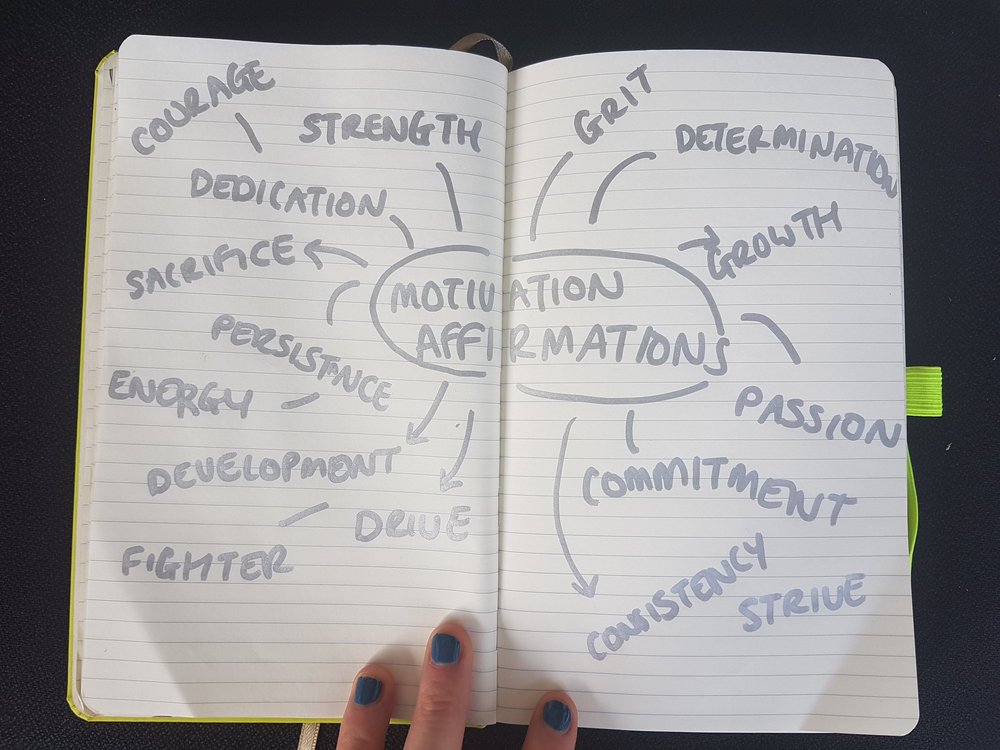 COURAGE
STRENGTH
DEDICATION
SACRIFICE
PERSISTANCE
ENERGY
DEVELOPMENT
DRIVE
FIGHTER
MOTIVATION
AFFIRMATIONS
GRIT
DETERMINATION
GROWTH
PASSION
COMMITMENT
CONSISTENCY
STRIVE